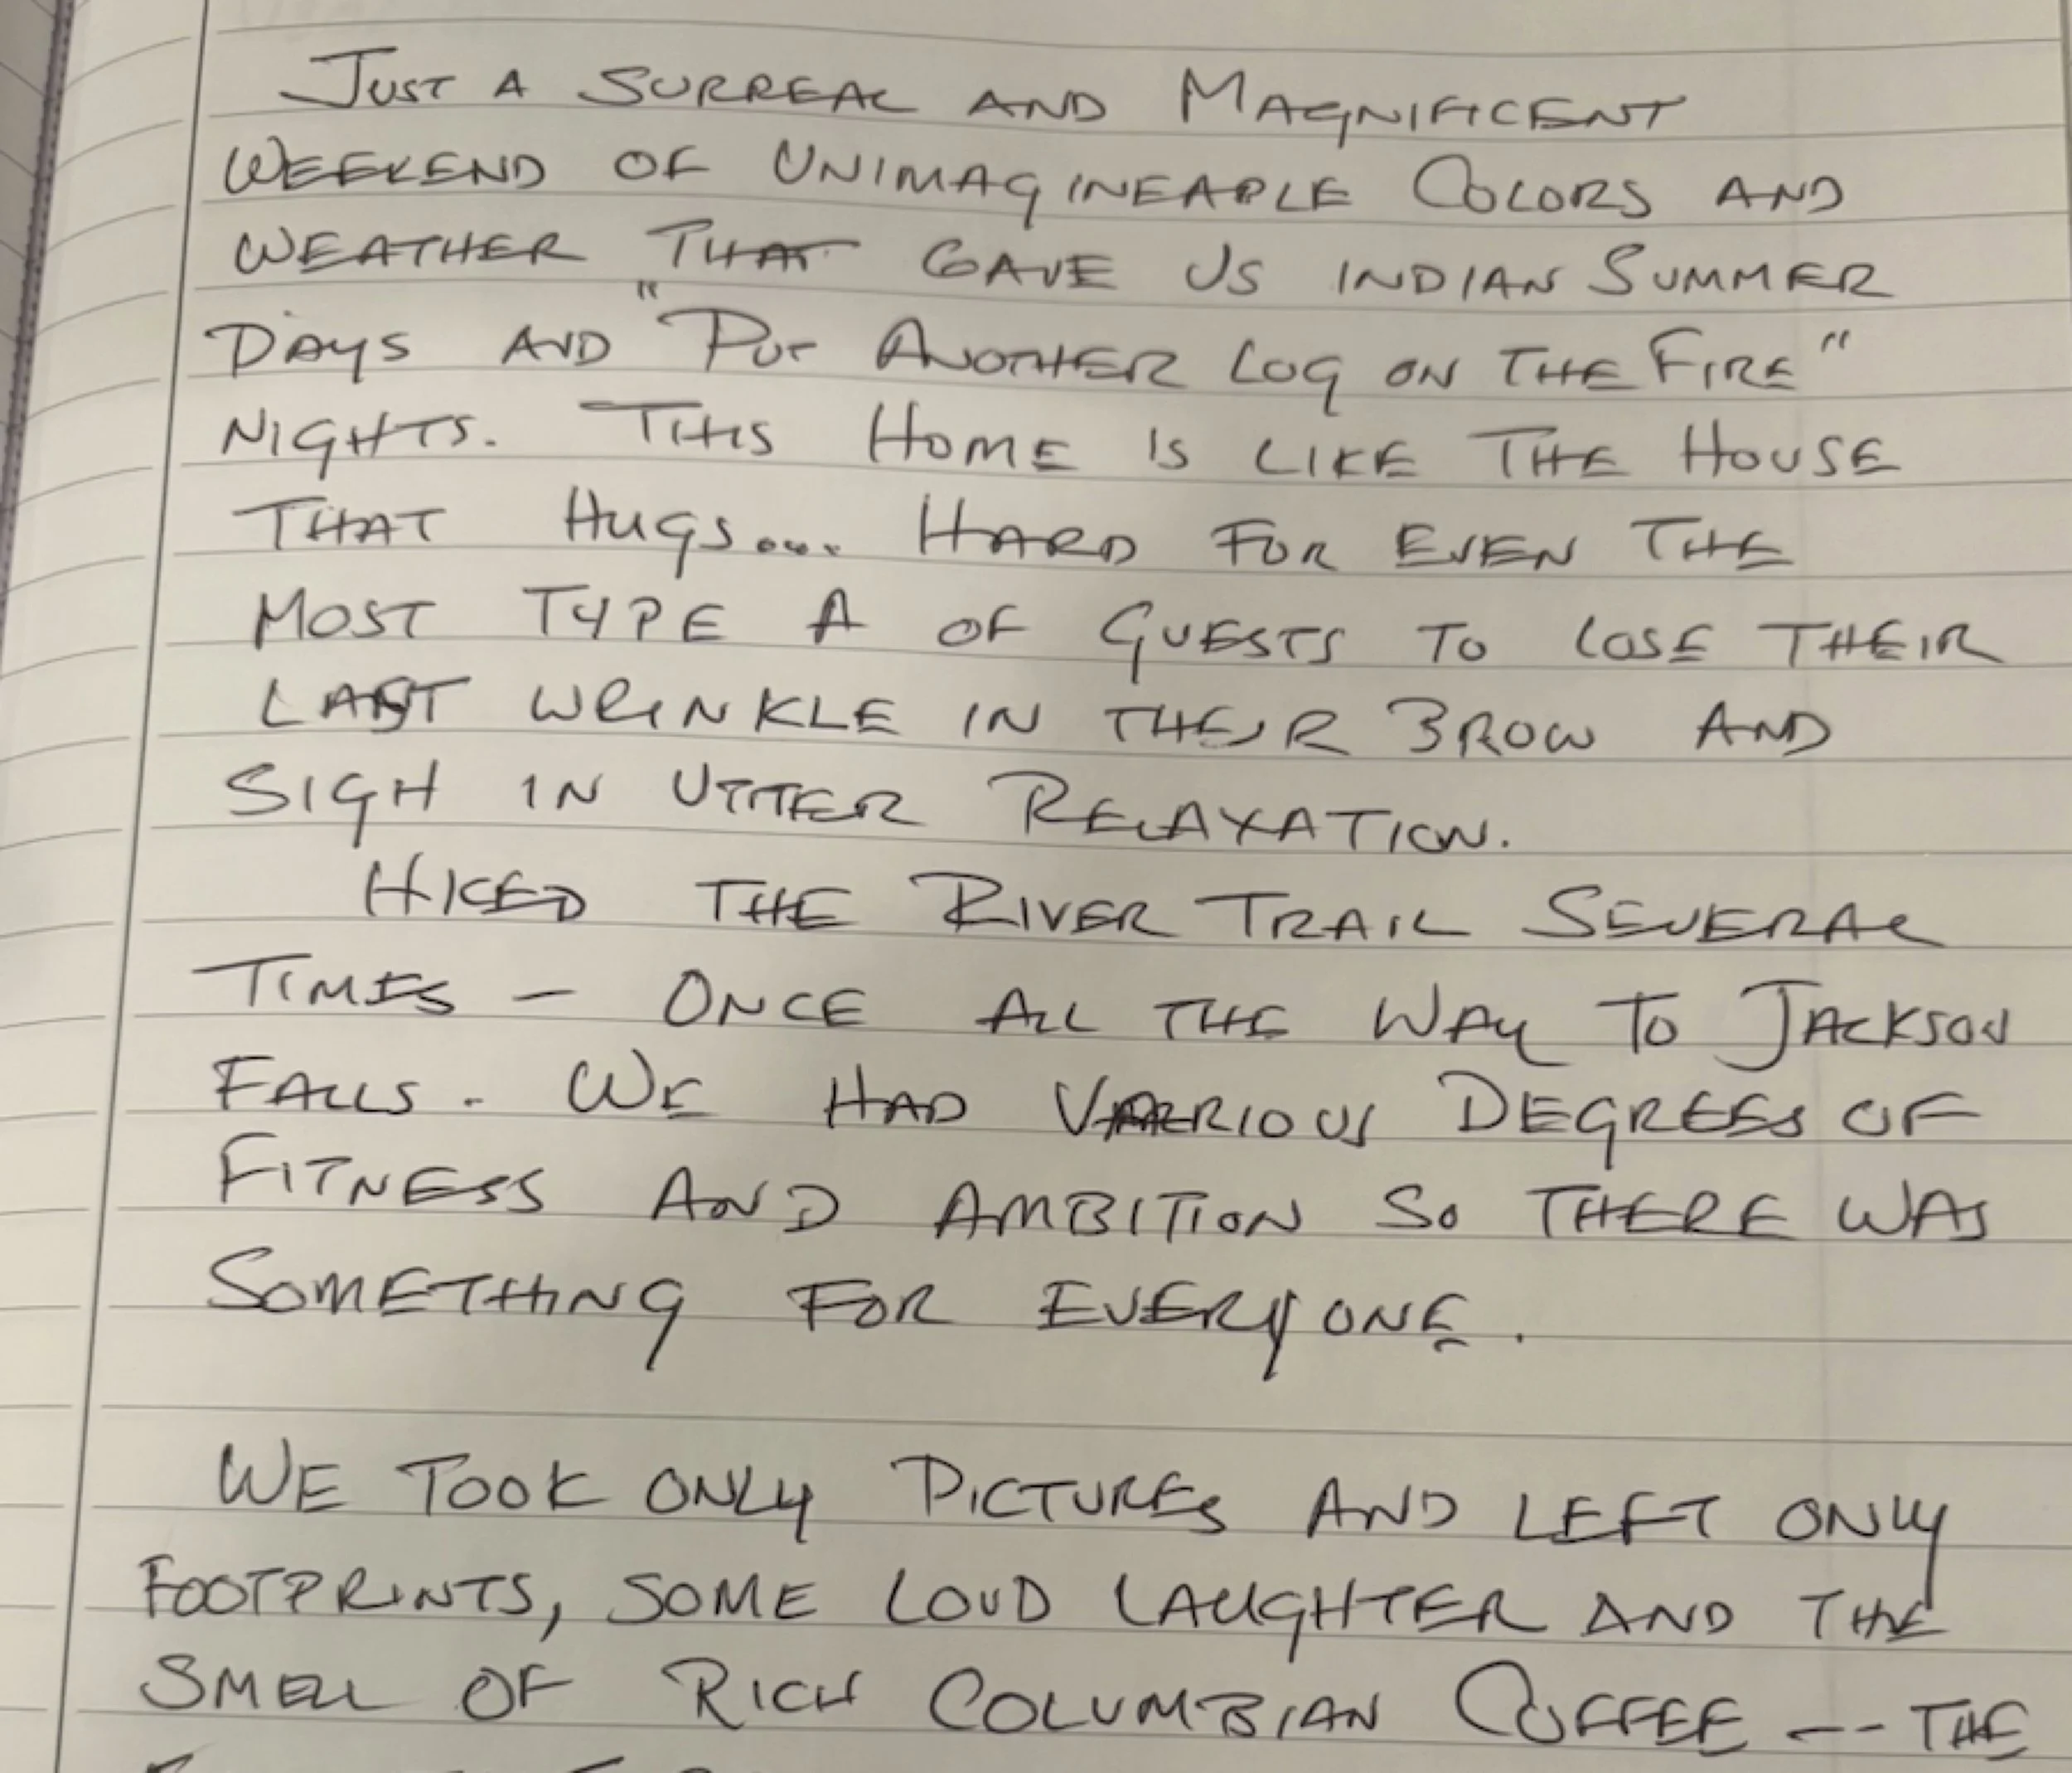 JUST A SURREAL AND MAGNIFICENT
WEEKEND OF UNIMAGINEABLE COLORS AND
WEATHER THAT GAVE US INDIAN SUMMER
DAYS AND "PUT ANOTHER LOG ON THE FIRE"
NIGHTS. THIS HOME IS LIKE THE HOUSE
THAT HUGS.... HARD FOR EVEN THE
MOST TYPE A OF GUESTS TO LOSE THEIR
LAST WRINKLE IN THEIR BROW AND
SIGH IN UTTER RELAXATION.
HIKED THE RIVER TRAIL SEVERAL
TIMES - ONCE ALL THE WAY TO JACKSON
FALLS. WE HAD VARIOUS DEGREES OF
FITNESS AND AMBITION SO THERE WAS
SOMETHING FOR EVERYONE.
WE TOOK ONLY PICTURES AND LEFT ONLY
FOOTPRINTS, SOME LOUD LAUGHTER AND THE
SMELL OF RICH COLUMBIAN COFFEE -- THE